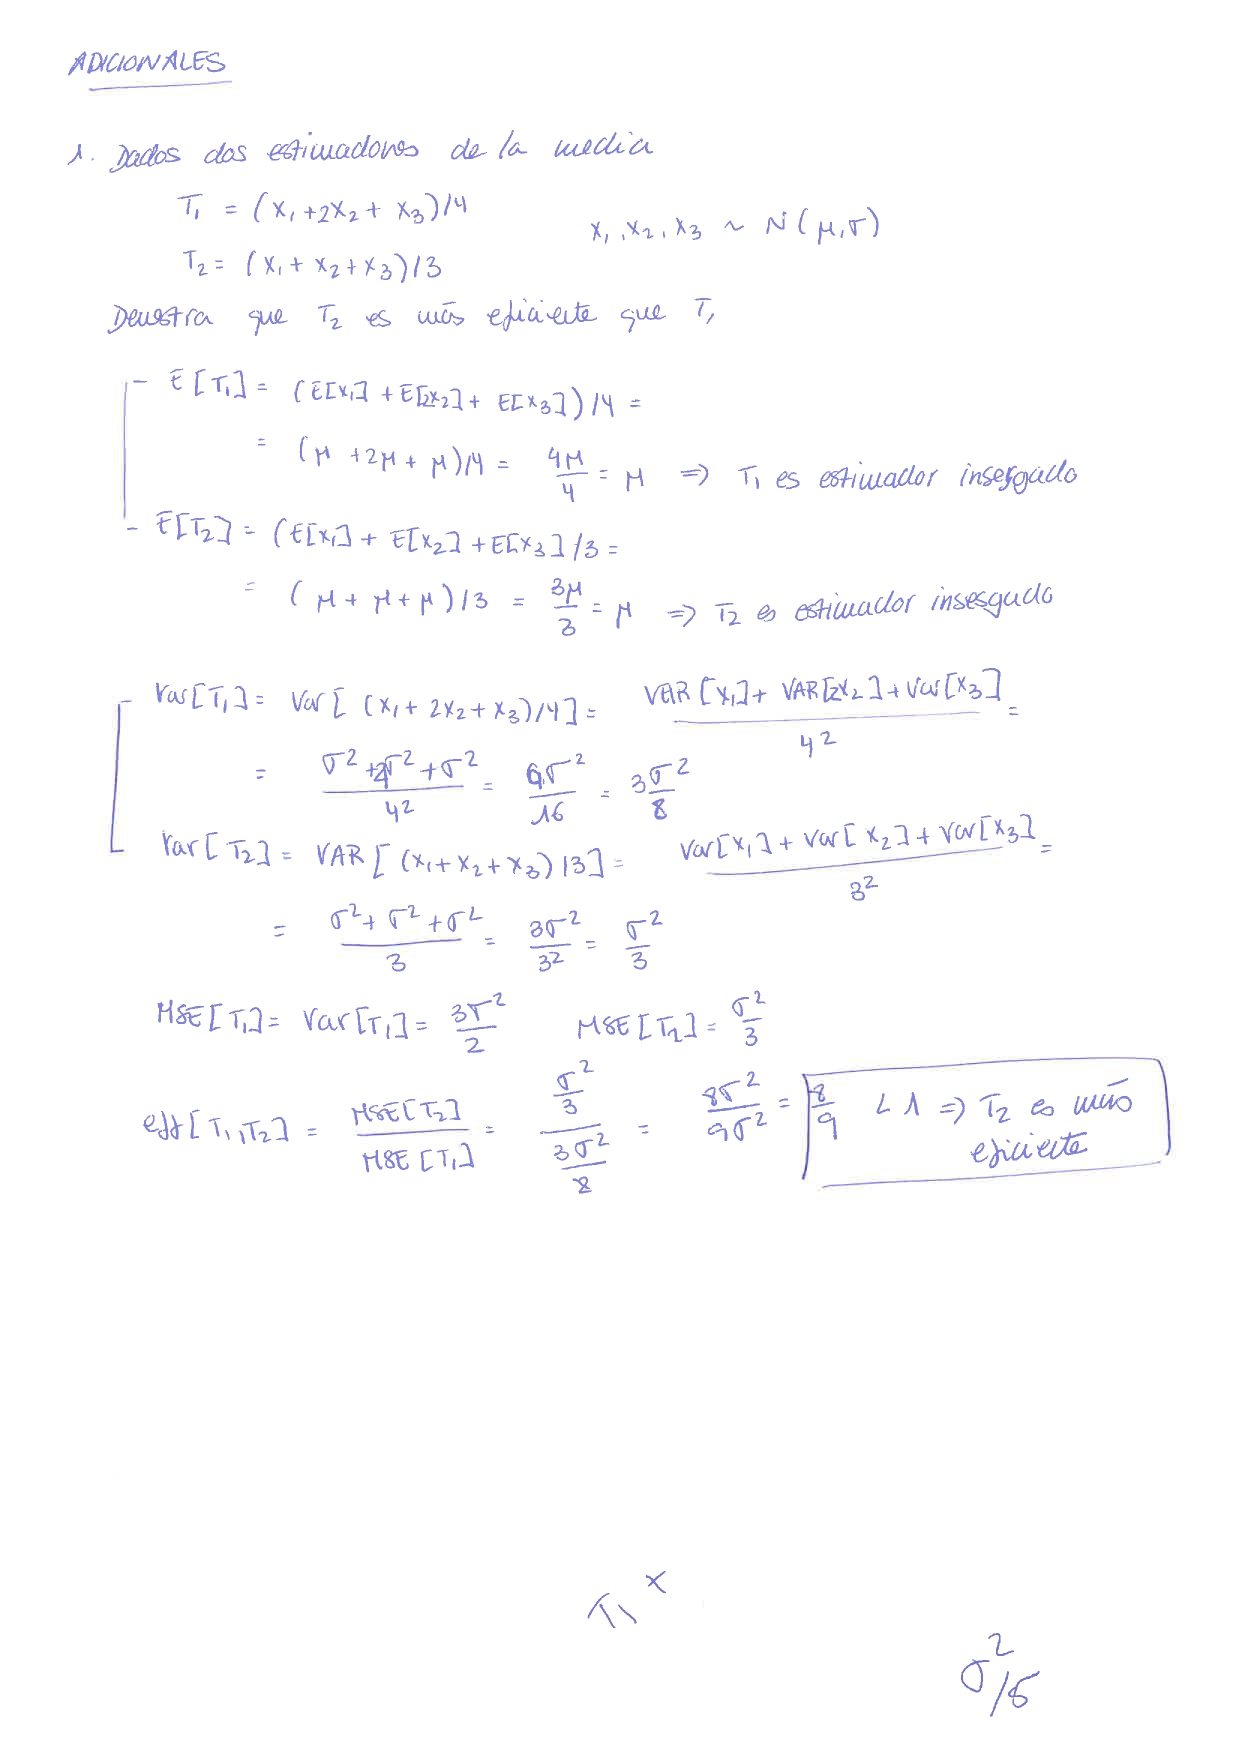 ADICIONALES
1. Dados dos estimadores de la media
T₁ = (x₁ + 2x₂ + x₃)/4
x₁, x₂, x₃ ~ N(μ, σ)
T₂ = (x₁ + x₂ + x₃)/3
Demostra que T₂ es más eficiente que T₁
- E[T₁] = (E[x₁] + E[2x₂] + E[x₃])/4 =
= (μ + 2μ + μ)/4 = 4μ/4 = μ ⇒ T₁ es estimador insesgado
- E[T₂] = (E[x₁] + E[x₂] + E[x₃]/3 =
= (μ + μ + μ)/3 = 3μ/3 = μ ⇒ T₂ es estimador insesgado
- Var[T₁] = Var[(x₁ + 2x₂ + x₃)/4] = VAR[x₁] + VAR[2x₂] + Var[x₃] / 4² =
= σ² + 4σ² + σ² / 4² = 6σ²/16 = 3σ²/8
Var[T₂] = VAR[(x₁ + x₂ + x₃)/3] = Var[x₁] + Var[x₂] + Var[x₃] / 3² =
= σ² + σ² + σ² / 3 = 3σ²/3² = σ²/3
MSE[T₁] = Var[T₁] = 3σ²/2 MSE[T₂] = σ²/3
eff[T₁, T₂] = MSE[T₂] / MSE[T₁] = σ²/3 / 3σ²/8 = 8σ²/9σ² = 8/9 < 1 ⇒ T₂ es más
eficiente
T₁ x
σ²/5